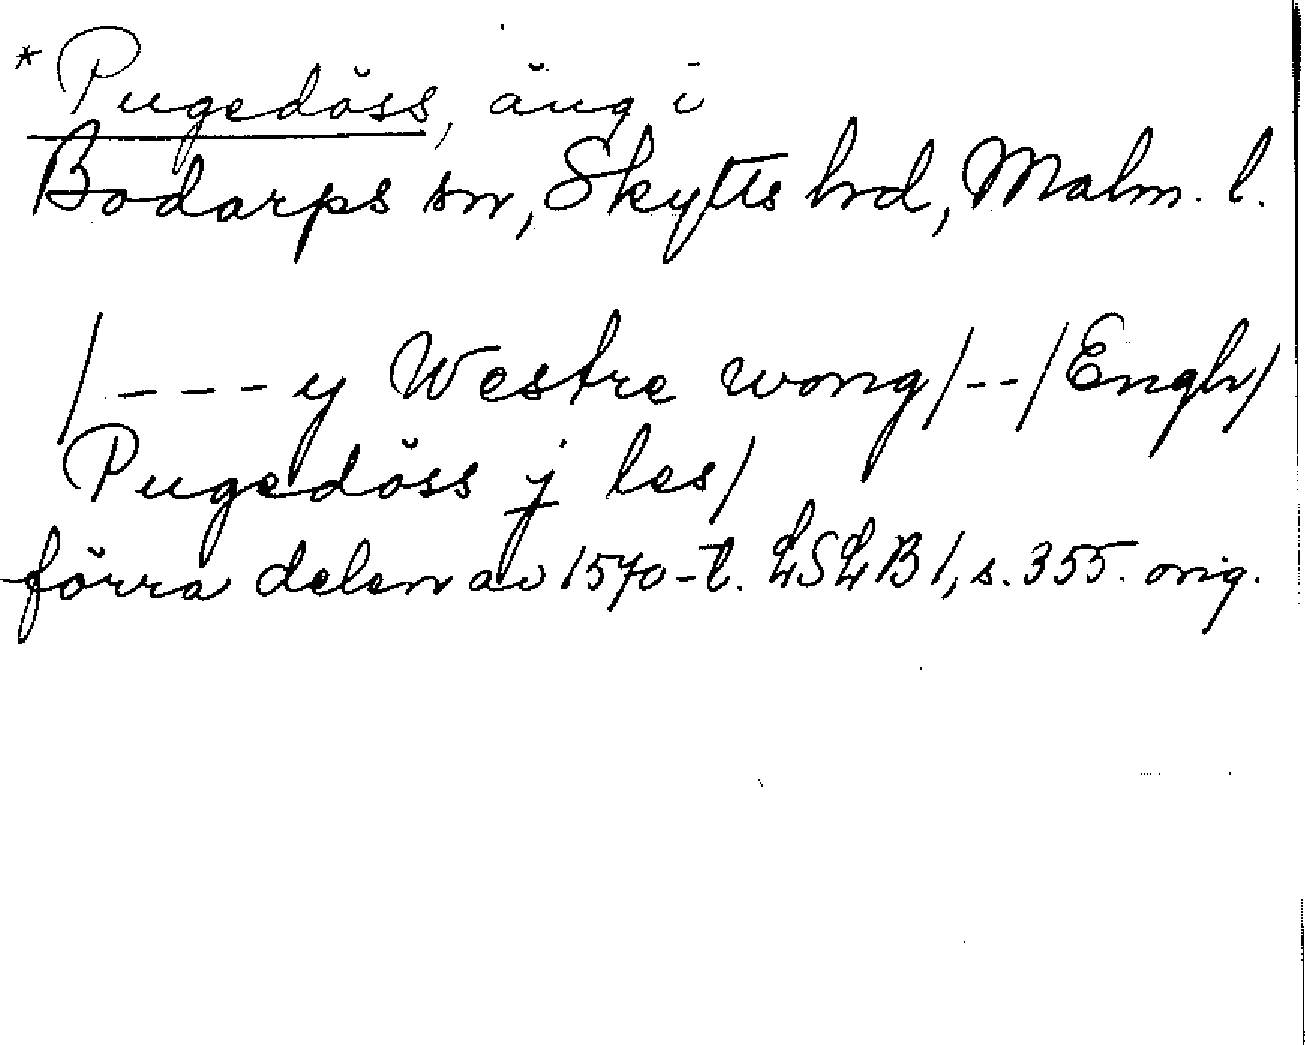 * Pugedöss, äng i
Bodarps sn, Skytts hd, Malm. l.
/---y Westre wong/--/Engh/
Pugedöss j les/
förra delen av 1570-t. LSLB 1, s. 355. orig.